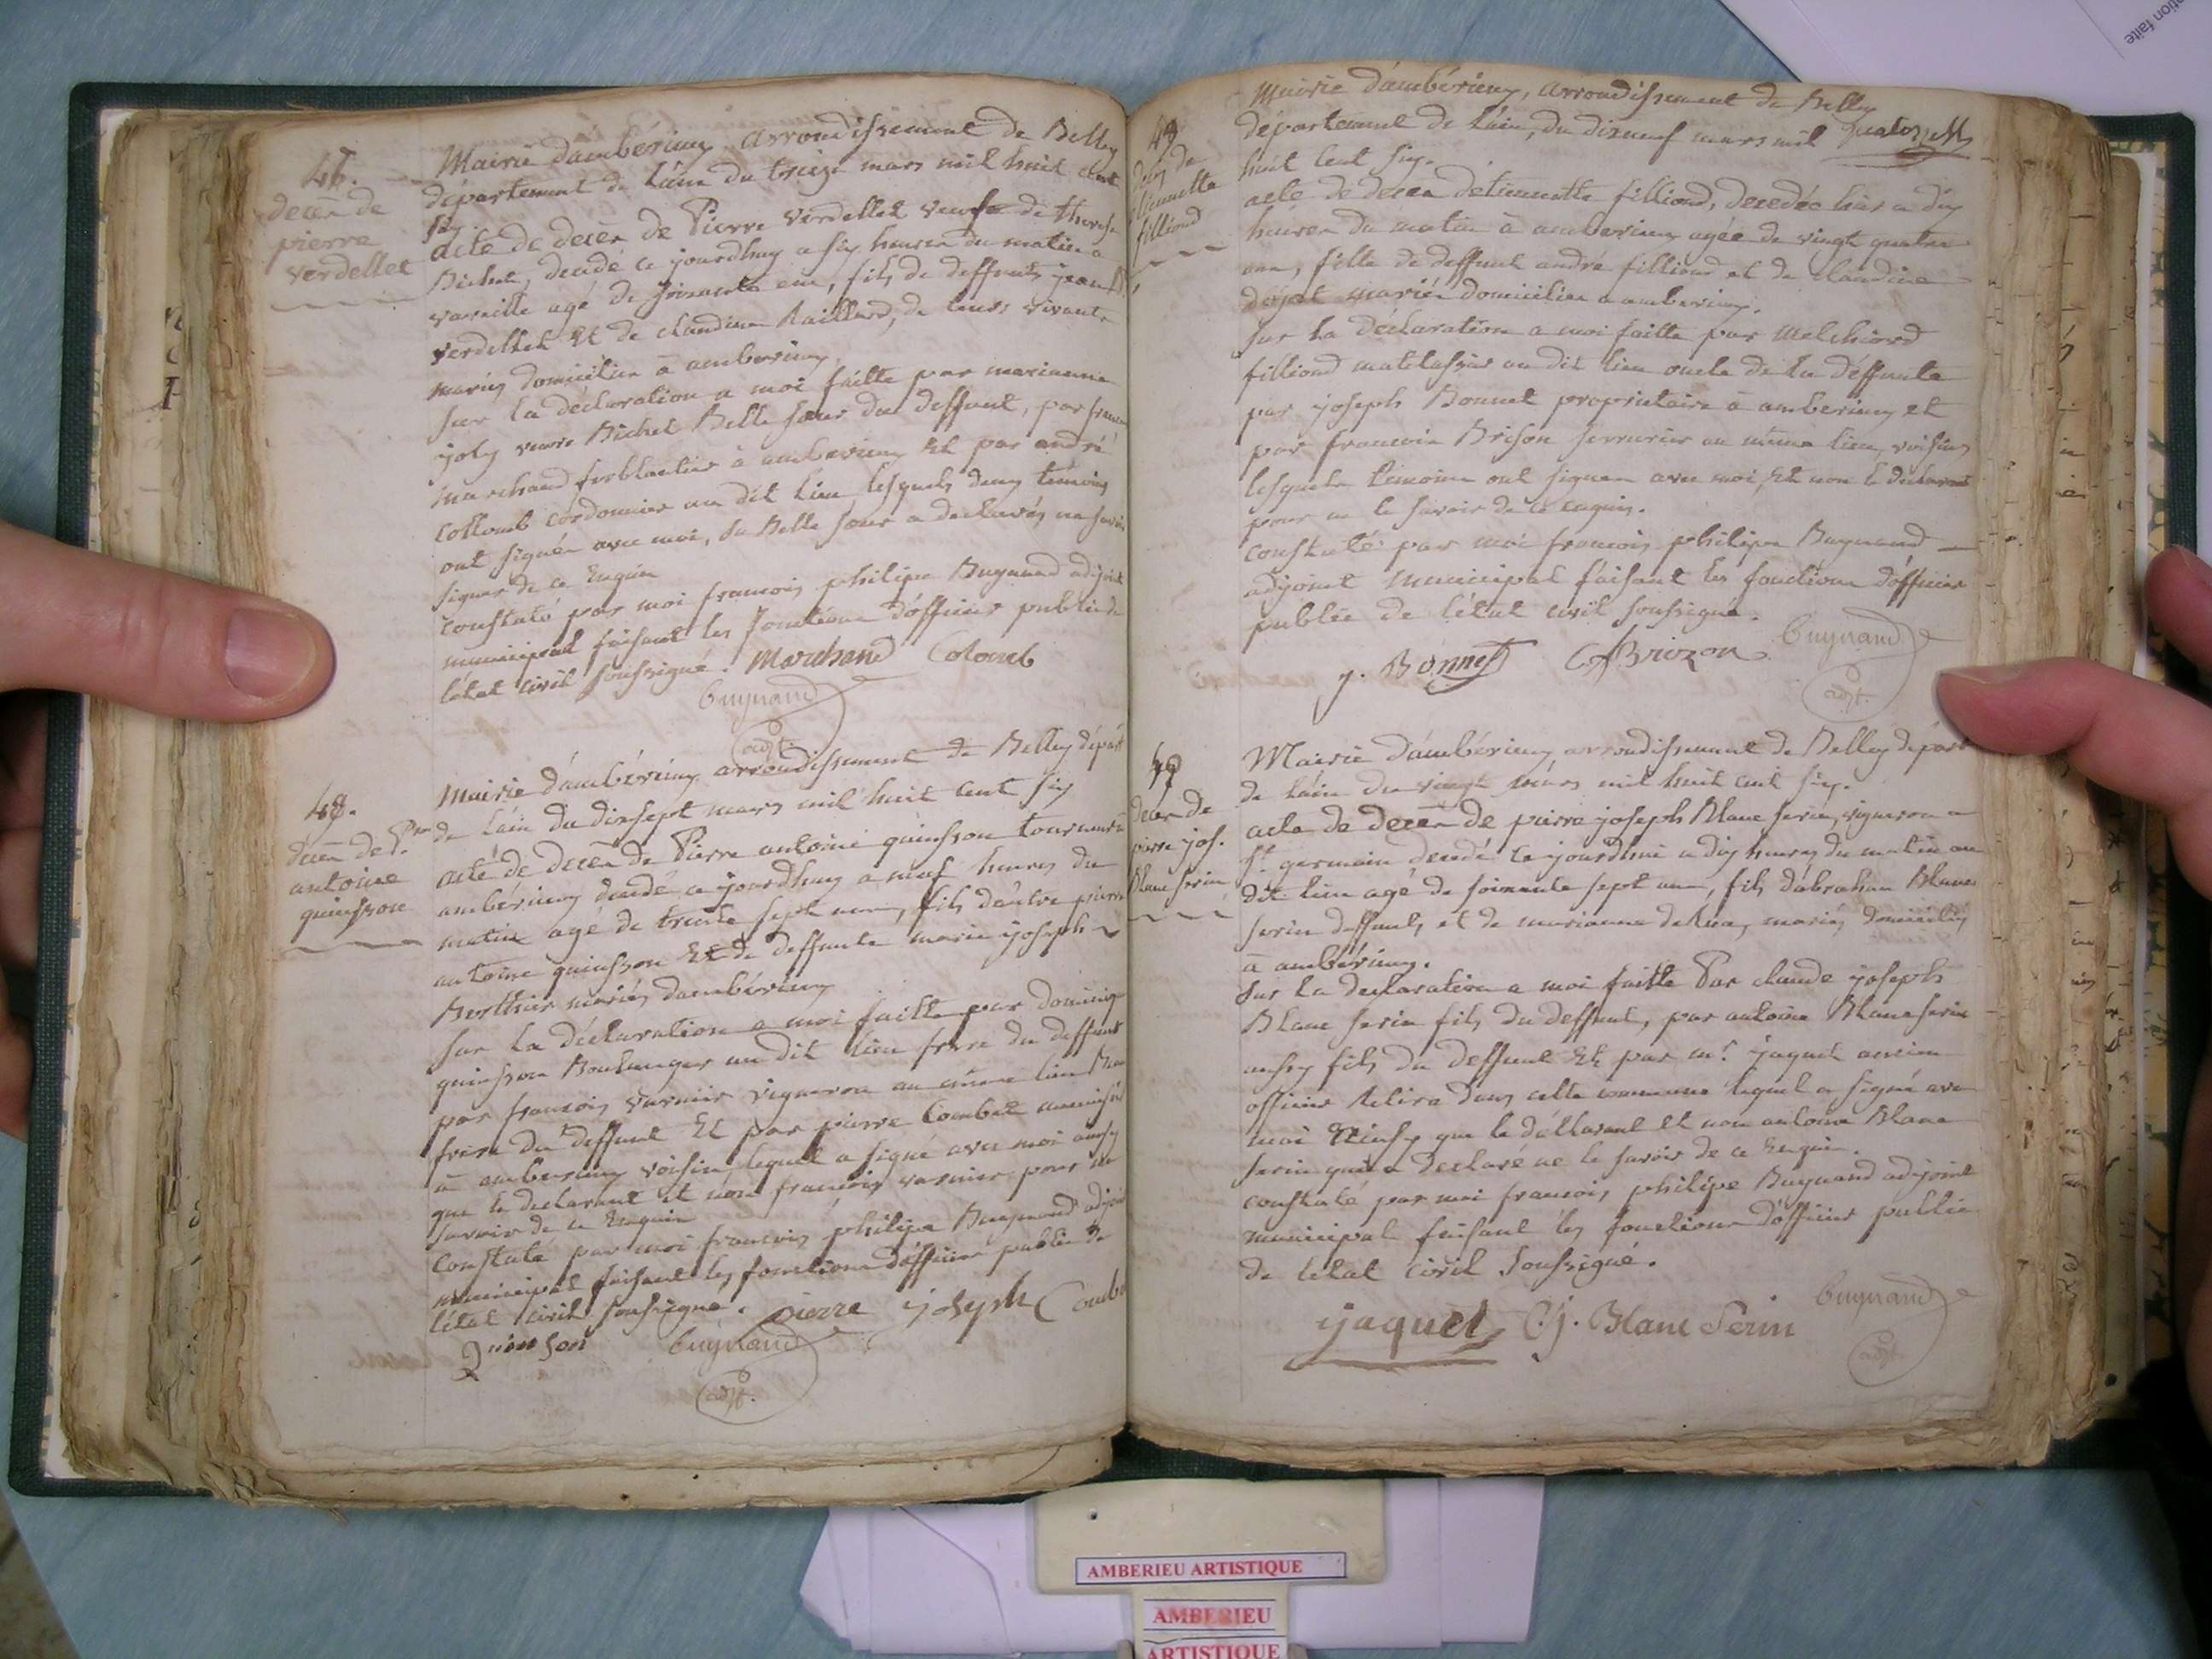 46.
decèn de
pierre
verdellet
Mairie d'ambérieux arrondissement de Belley
département de l'ain du treize mars mil huit cent
six
acte de decèn de Pierre verdellet veuf de therese
Bichet, decidé ce jourdhuy a six heures du matin a
agé de soixante ans, fils de deffunts jean
verdellet Et de claudine Raillard, de leurs vivants
mariés domiciliés à amberieux
sur la déclaration a moi faitte par marianne
joly veuve Bichet Belle soeur du deffunt, par
marchand ferblantier à amberieux Et par andré
Collomb cordonnier au dit lieu lesquels deux témoins
ont signés avec moi, la Belle soeur a declarés ne savoir
signer de ce Enquis
Constaté par moi francois philipe Buynand adjoint
municipal faisant les fonctions d'officier public de
l'état civil soussigné. Marchand Colomb
Buynand
adjt.
48.
decèn de Prre
antoine
quinsson
Mairie d'ambérieux arrondissement de Belley départ
de l'ain du dixsept mars mil huit cent six
acte de decèn de Pierre antoine quinsson tourneur
ambérieux decidé ce jourdhuy a neuf heures du
matin agé de trente sept ans, fils d'autre pierre
antoine quinsson Et de deffunte marie joseph
Berthier mariés d'ambérieux
sur la déclaration a moi faitte par dominiq
quinsson Boulanger au dit lieu frere du deffunt
par francois varnier vigneron au même lieu Beau
frere du deffunt Et par pierre Combet
à amberieux voisin, lequel a signé avec moi ainsy
que le declarant et non francois varnier pour ne
savoir de ce Enquis
Constaté par moi francois philipe Buynand adjoint
municipal faisant les fonctions d'officier public de
l'état civil soussigné. pierre joseph Combe
Quinson Buynand
adjt.
49
decès de
tiennette
filliond
Mairie d'ambérieux, arrondissement de Belley
département de l'ain, du dixneuf mars mil
huit cent six.
acte de decèn detiennette filliond, decedée hier a dix
heures du matin à amberieux agée de vingt quatre
ans, fille de deffunt andré filliond et de Claudine
mariés domiciliés a amberieux.
sur la déclaration a moi faitte par Melchiord
filliond matelassier au dit lieu oncle de la deffunte
par joseph Bonnet proprietaire à amberieux et
par francois Brison serrurier au même lieu, voisins
lesquels temoins ont signés avec moi, Et non le declarant
pour ne le savoir de ce enquis.
Constaté par moi francois philipe Buynand
adjoint municipal faisant les fonctions d'officier
public de l'état civil soussigné.
j. Bonnet Brizon Buynand
adjt.
decèn de
pierre jos.
Blanc serin
Mairie d'ambérieux, arrondissement de Belley départ
de l'ain du vingt mars mil huit cent six.
acte de decèn de pierre joseph Blanc serin, vigneron a
st germain decedé ce jourdhui a dix heures du matin au
dit lieu agé de soixante sept ans, fils d'abraham Blanc
serin deffunt, et de marianne mariés domiciliés
à ambérieux.
sur la declaration a moi faitte Par claude joseph
Blanc serin fils du deffunt, par antoine Blanc serin
aussy fils du deffunt Et par mr. jaquet ancien
officier retiré dans cette commune lequel a signé avec
moi Ainsy que le déclarant et non antoine Blanc
serin qui a declaré ne le savoir de ce Enquis.
constaté par moi francois philipe Buynand adjoint
municipal faisant les fonctions d'officier public
de l'état civil soussigné.
jaquet C. j. Blanc Serin Buynand
adjt.
AMBERIEU ARTISTIQUE
AMBERIEU
ARTISTIQUE